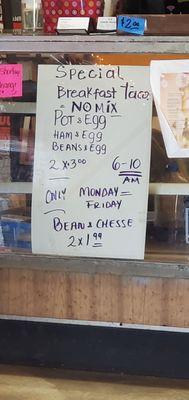 $2.00
Special
Breakfast Taco
NO MIX
POT & EGG
HAM & EGG
BEANS & EGG
2 x 3.00 6-10
AM
ONLY MONDAY
FRIDAY
BEAN & CHESSE
2 x 1.99